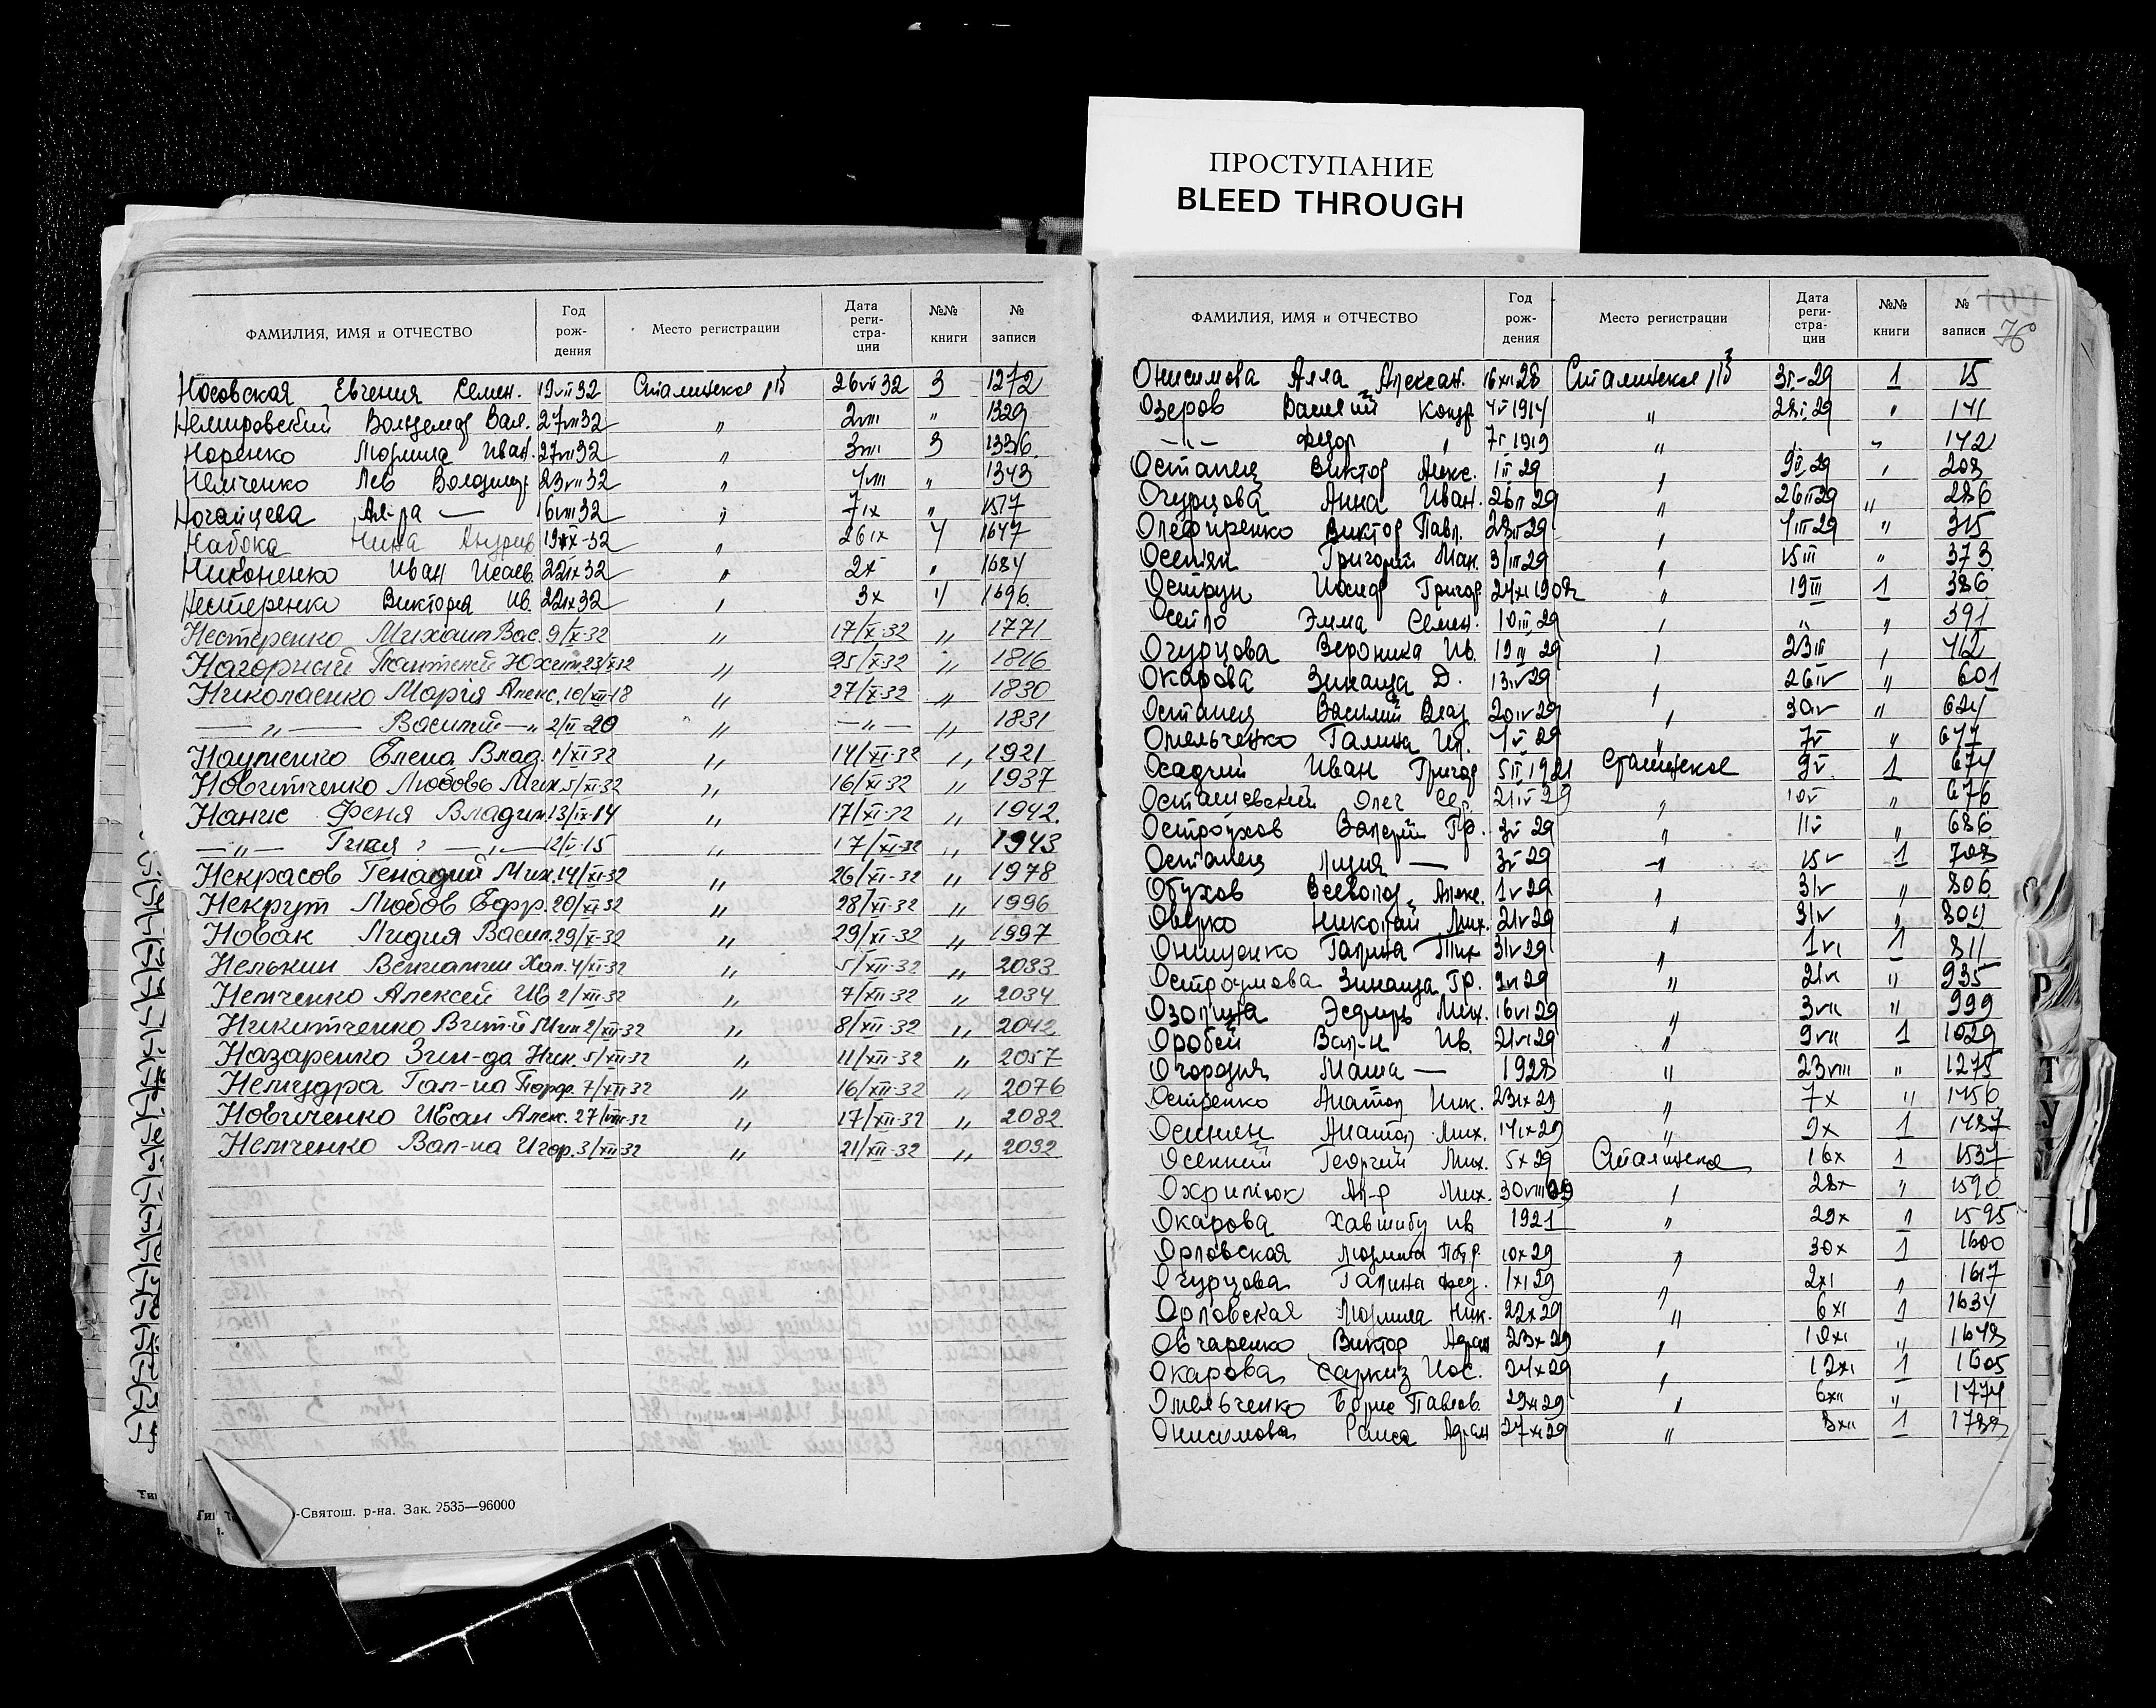 ПРОСТУПАНИЕ
BLEED THROUGH
ФАМИЛИЯ, ИМЯ и ОТЧЕСТВО Год рождения Место регистрации Дата регистрации №№ книги № записи
Носовская Евгения Семен. 19VII32 Сталинское 26VII32 3 1272
Немировский Вольдемар Вал. 27VII32 " 2VIII " 1329
Норенко Людмила Иван. 27VII32 " 3VIII 3 1336
Немченко Лев Володимир 23VII32 " 4VIII " 1343
Ногайцева Ал-ра — 16VIII32 " 7IX " 1577
Набока Нина Андрив 19IX-32 " 26IX 4 1647
Никоненко Иван Исаев. 22IX32 " 2X " 1684
Нестеренко Виктория Ив. 22IX32 " 3X 4 1696
Нестеренко Михаил Вас. 9/X-32 " 17/X-32 " 1771
Нагорный Пантелей Юхим. " 25/X-32 " 1816
Николаенко Марія Алекс. 10/XII-18 " 27/X-32 " 1830
—"— Василий —"— 2/II-20 " —"— " 1831
Науменко Елена Влад. 1/XI32 " 14/XI-32 " 1921
Новитченко Любовь Мих. 5/XI-32 " 16/XI-32 " 1937
Нанис Феня Владим. 13/IX-14 " 17/XI-32 " 1942
—"— —"— 12/V-15 " 17/XI-32 " 1943
Некрасов Генадий Мих. 14/XI-32 " 26/XI-32 " 1978
Некрут Любов 20/XI-32 " 28/XI-32 " 1996
Новак Лидия Васил. 29/X-32 " 29/XI-32 " 1997
Нелькин Вениамин Хал. 4/XI-32 " 5/XII-32 " 2033
Немченко Алексей Ив 2/XII-32 " 7/XII-32 " 2034
Никитченко Вит-й Мих 2/XII-32 " 8/XII-32 " 2042
Назаренко Зин-да Ник. 5/XII-32 " 11/XII-32 " 2057
Немудра Гал-на Порф. 7/XII32 " 16/XII-32 " 2076
Новиченко Иван Алек. 27/VIII-32 " 17/XII-32 " 2082
Немченко Вал-на Игор. 3/XII32 " 21/XII-32 " 2092
-Святош. р-на. Зак. 2535—96000
76
ФАМИЛИЯ, ИМЯ и ОТЧЕСТВО Год рождения Место регистрации Дата регистрации №№ книги № записи
Онисимова Алла Алексан. 16XII28 Сталинское 3I-29 1 15
Озеров Василий Конд. 4V1914 " 28I29 " 141
—"— Федор " 7I1919 " " " 142
Останец Виктор Алекс. 1II29 " 9II29 " 208
Огурцова Анна Иван. 26II29 " 26II29 " 286
Олефиренко Виктор Павл. 28II29 " 4III29 " 315
Осетян Григорий Ман. 3/III29 " 15III " 373
Острун Иосиф Григор. 24XI1902 " 19III 1 386
Осейло Эмма Семен. 10III29 " " " 391
Огурцова Вероника Ив. 19III29 " 23III " 412
Окарова Зинаида Д. 13IV29 " 26IV " 601
Останец Василий Влад. 20IV29 " 30IV " 624
Омельченко Галина Ил. 4V29 " 7V " 647
Осадчий Иван Григор 5II1921 Сталинское 9V 1 674
Осташевский Олег Сер. 21IV29 " 10V " 676
Остроухов Валерий Гр. 3V29 " 11V " 686
Останец Лидия — 3V29 —"— 15V 1 708
Обухов Всеволод Алекс. 1V29 " 31V " 806
Оверко Николай Мих. 21V29 " 31V " 804
Онищенко Галина Тих 31V29 " 1VI 1 811
Остроумова Зинаида Гр. 9VI29 " 21VI " 935
Озолина Эсфирь Мих. 16VI29 " 3VII " 999
Оробей Вал-н Ив. 21VI29 " 9VII 1 1029
Огородня Маша — 1928 " 23VIII " 1275
Остренко Анатол Ник. 23IX29 " 7X " 1456
Осинин Анатол Мих. 14IX29 " 9X 1 1487
Осенний Георгий Мих. 5X29 Сталинское 16X 1 1537
Охрипюк Ал-р Мих. 30VIII09 " 28X " 1590
Окарова Ив 1921 " 29X 1 1595
Орловская Людмила Петр. 10X29 " 30X 1 1600
Огурцова Галина Фед. 1XI29 " 2XI " 1617
Орловская Людмила Ник. 22X29 " 6XI 1 1634
Овчаренко Виктор Адам 23X29 " 10XI " 1648
Окарова Саркиз Иос. 24X29 " 12XI 1 1605
Омельченко Борис Павлов. 29XI29 " 6XII " 1774
Онисимова Раиса Адам 27XI29 " 8XII 1 1789